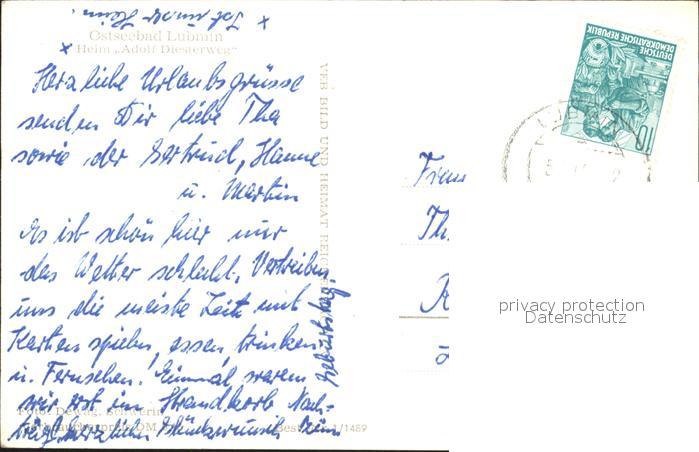 x Ist unser Heim.
Ostseebad Lubmin
x Heim „Adolf Diesterweg“
Herzliche Urlaubsgrüsse
senden Dir liebe Thea
sowie der Gertrud, Hanne
u. Martin
Es ist schön hier nur
das Wetter schlecht. Vertreiben
uns die meiste Zeit mit
Karten spielen, essen, trinken
u. Fernsehen! Einmal waren
wir erst im Strandkorb. Nach-
träglich herzlichen Glückwunsch zum
Geburtstag.
Foto: Dewag, Schwerin
Best.
1/1489
VEB BILD UND HEIMAT REICH
DEUTSCHE
DEMOKRATISCHE REPUBLIK
10
Th
privacy protection
Datenschutz